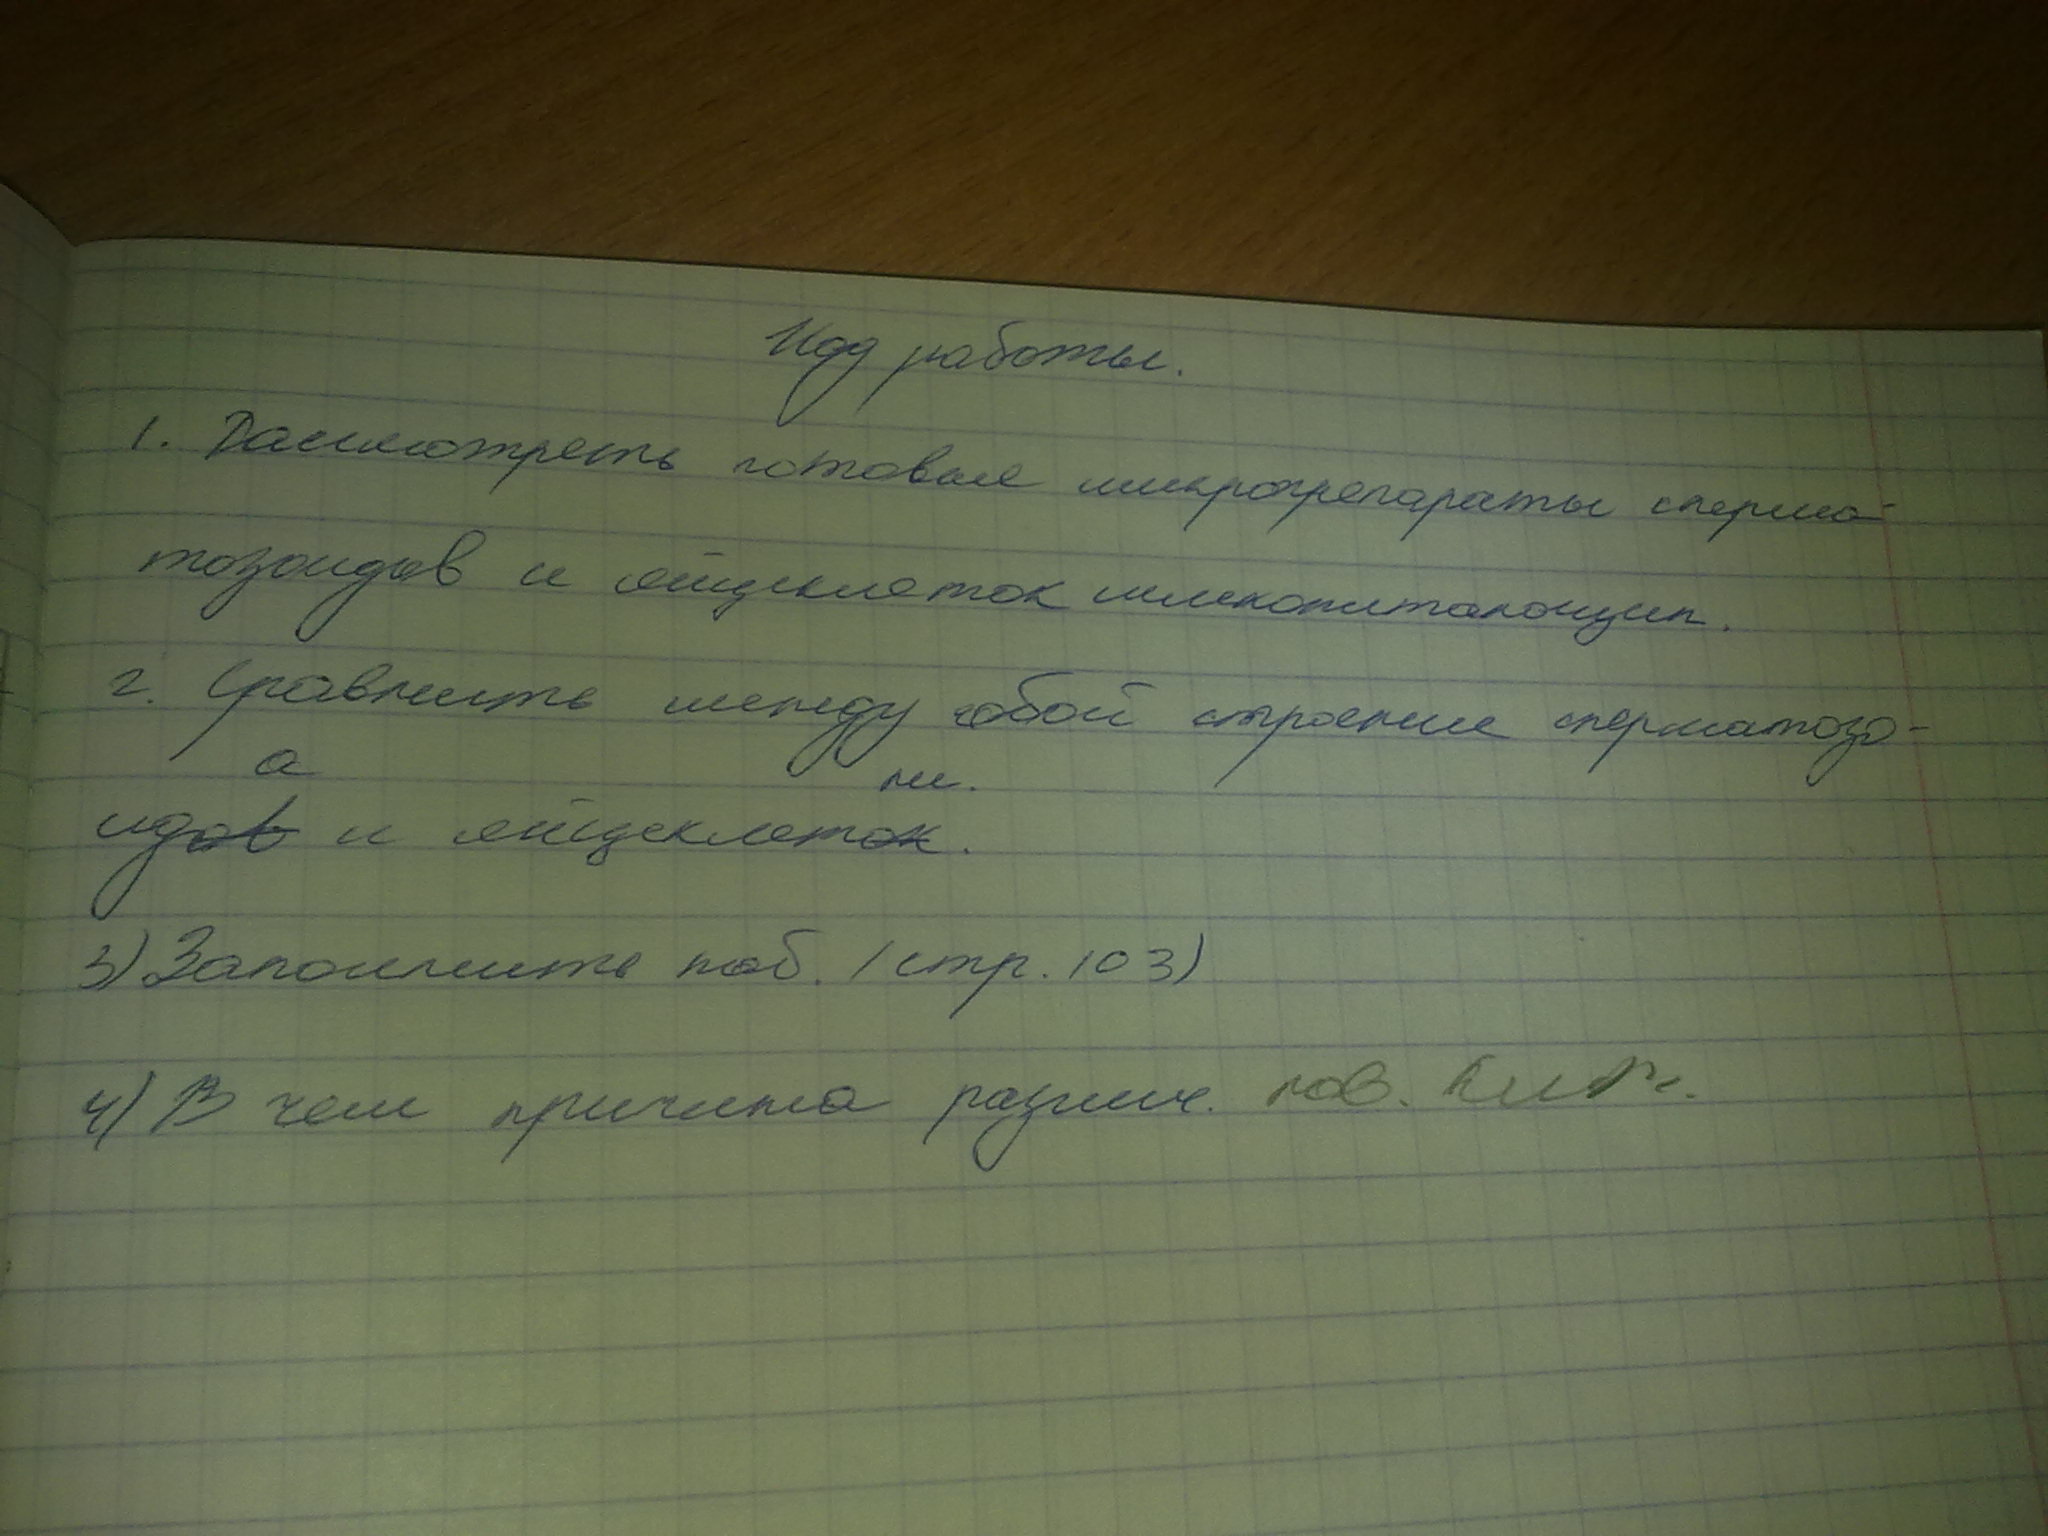 Ход работы.
1. Рассмотреть готовые микропрепараты сперма-
тозоидов и яйцеклеток млекопитающих.
2. Сравнить между собой строение сперматозо-
ида и яйцеклетки.
3) Заполнить таб. (стр. 103)
4) В чем причина различ. пов.